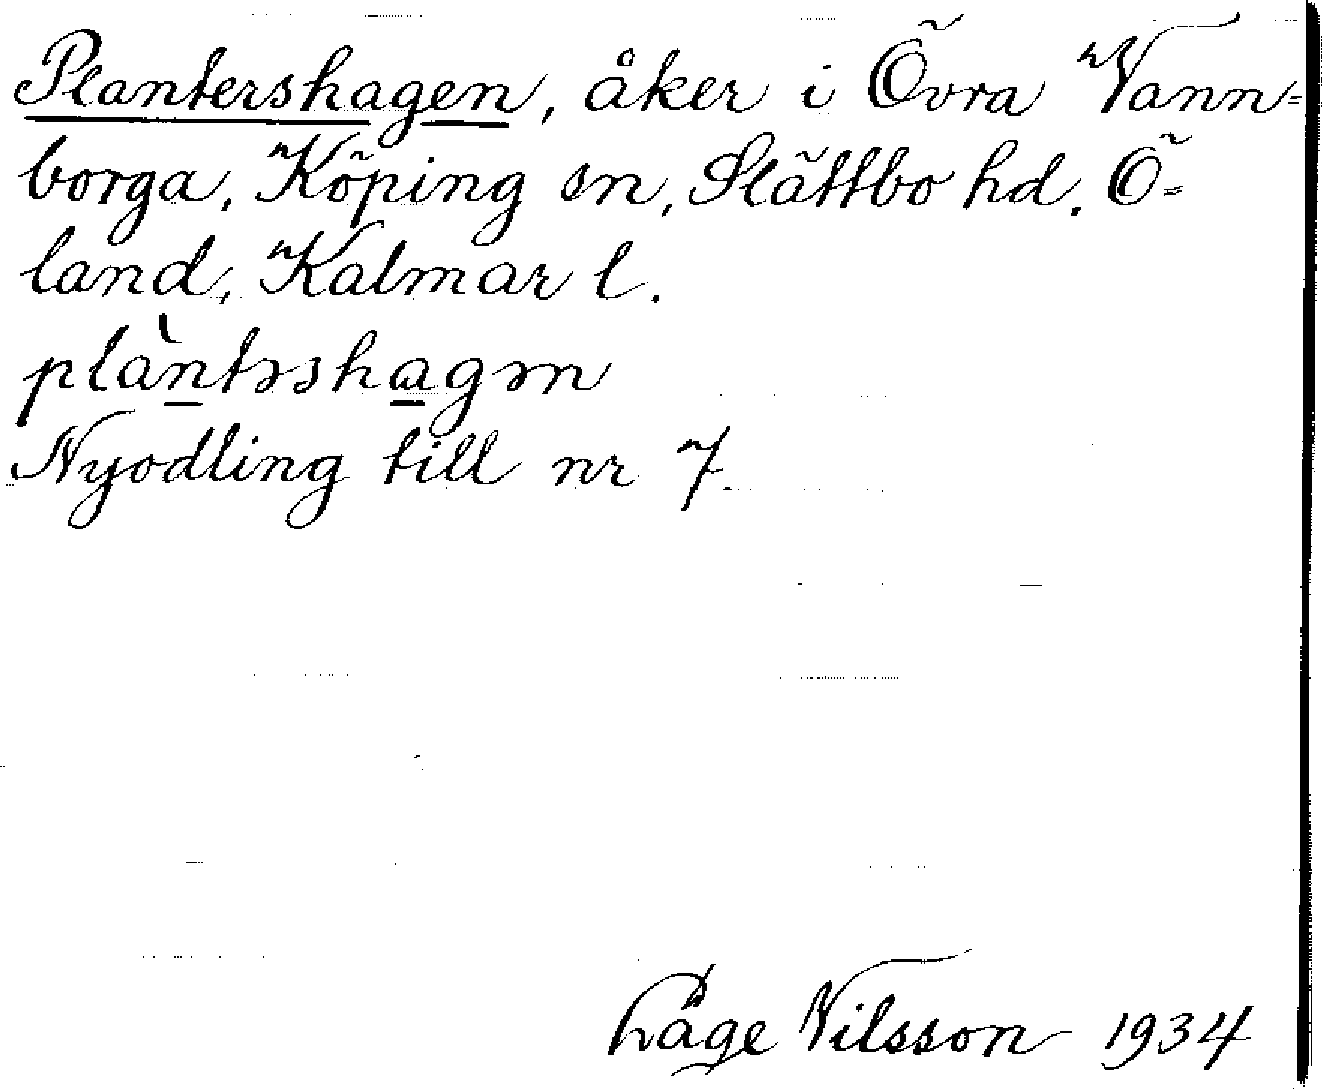 Plantershagen, åker i Övra Vann-
borga, Köping sn, Slättbo hd. Ö-
land, Kalmar l.
plàntəshagən
Nyodling till nr 7.
Låge Nilsson 1934